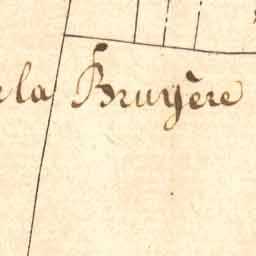 la Bruyère